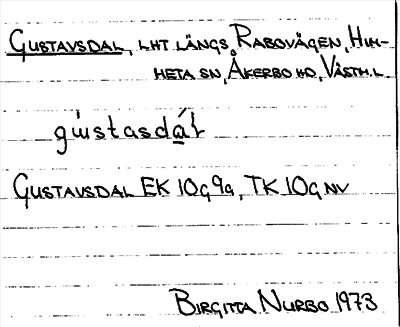 GUSTAVSDAL, LHT LÄNGS RABOVÄGEN, HIM-
HETA SN, ÅKERBO HD, VÄSTM.L
gu̍stasdá̱ł
GUSTAVSDAL EK 10G9a, TK 10G NV
BIRGITTA NURBO 1973